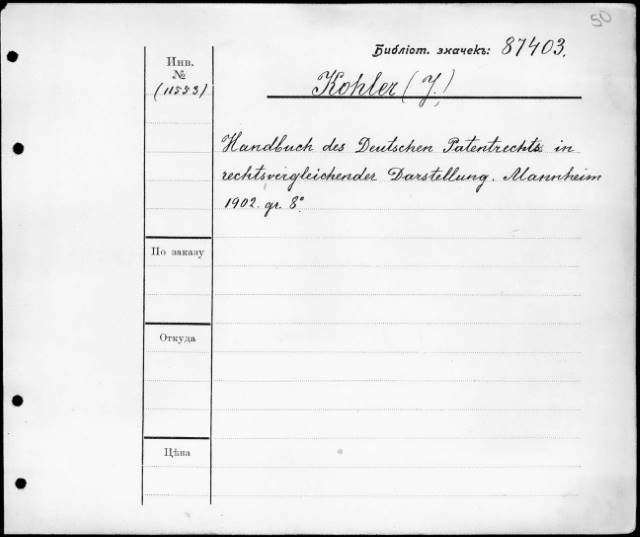 50
Библіот. значекъ: 87403.
Инв.
№
(11553)
Kohler (J.)
Handbuch des Deutschen Patentrechts in
rechtsvergleichender Darstellung. Mannheim
1902. gr. 8°
По заказу
Откуда
Цѣна